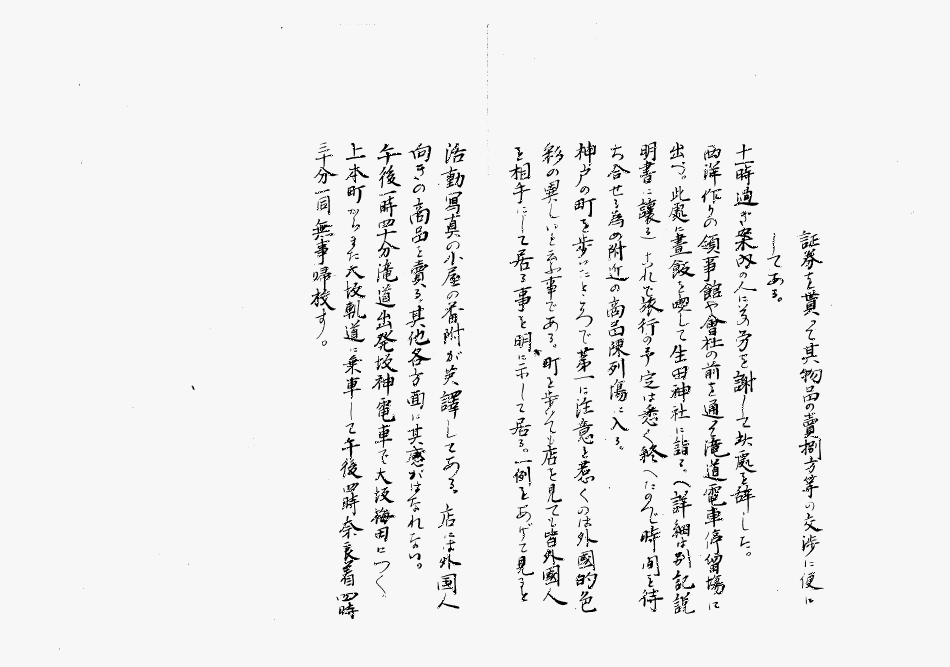 証券を貰って其物品の賣捌方等の交渉に便に
してある。
十一時過ぎ案内の人に其労を謝して此處を辞した。
西洋作りの領事館や會社の前を通って滝道電車停留場に
出づ。此處に晝飯を喫して生田神社に詣る。(詳細は別記説
明書に譲る)これで旅行の予定は悉く終へたので時間を待
ち合せる為め附近の商品陳列場に入る。
神戸の町を歩いたところで第一に注意を惹くのは外國的色
彩の異しいと云ふ事である。町を歩いても店を見ても皆外國人
を相手にして居る事を明に示して居る。一例をあげて見ると
活動写真の小屋の番附が英譯してある。店には外国人
向きの商品を賣る。其他各方面に其感がはなれない。
午後一時四十分滝道出発阪神電車で大坂梅田につく
上本町からまた大坂軌道に乗車して午後四時奈良着四時
三十分一同無事帰校す。